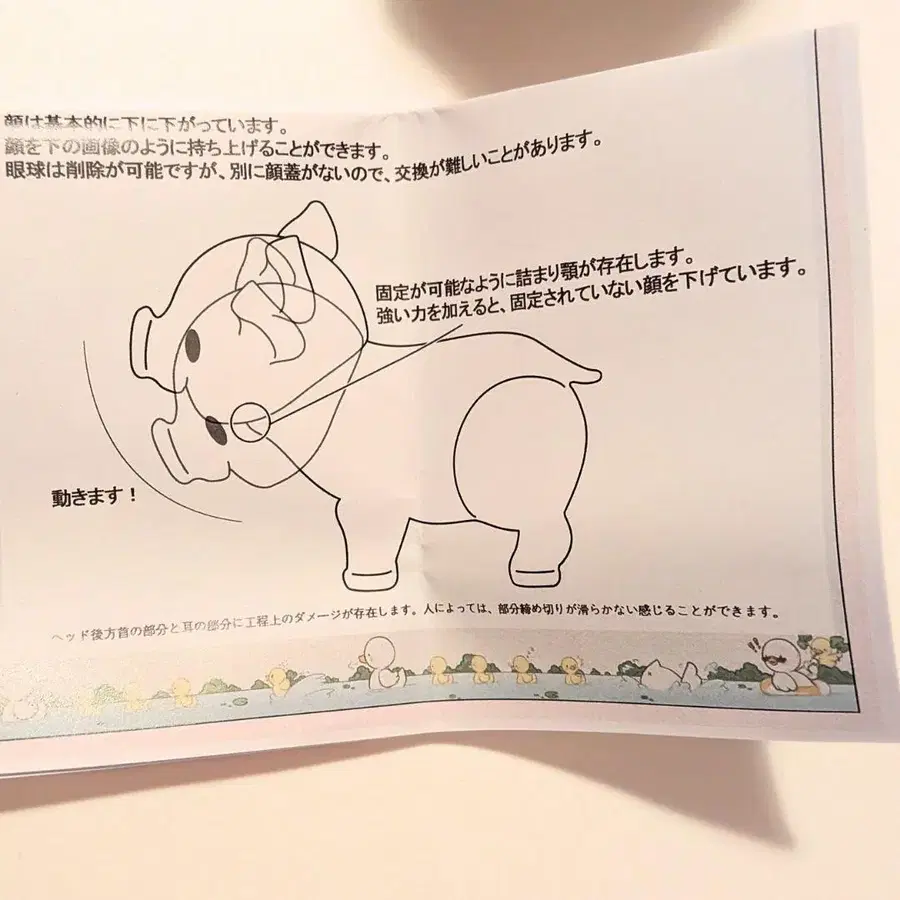 顔は基本的に下に下がっています。
顔を下の画像のように持ち上げることができます。
眼球は削除が可能ですが、別に顔蓋がないので、交換が難しいことがあります。
固定が可能なように詰まり顎が存在します。
強い力を加えると、固定されていない顔を下げています。
動きます！
ヘッド後方首の部分と耳の部分に工程上のダメージが存在します。人によっては、部分締め切りが滑らかない感じることができます。